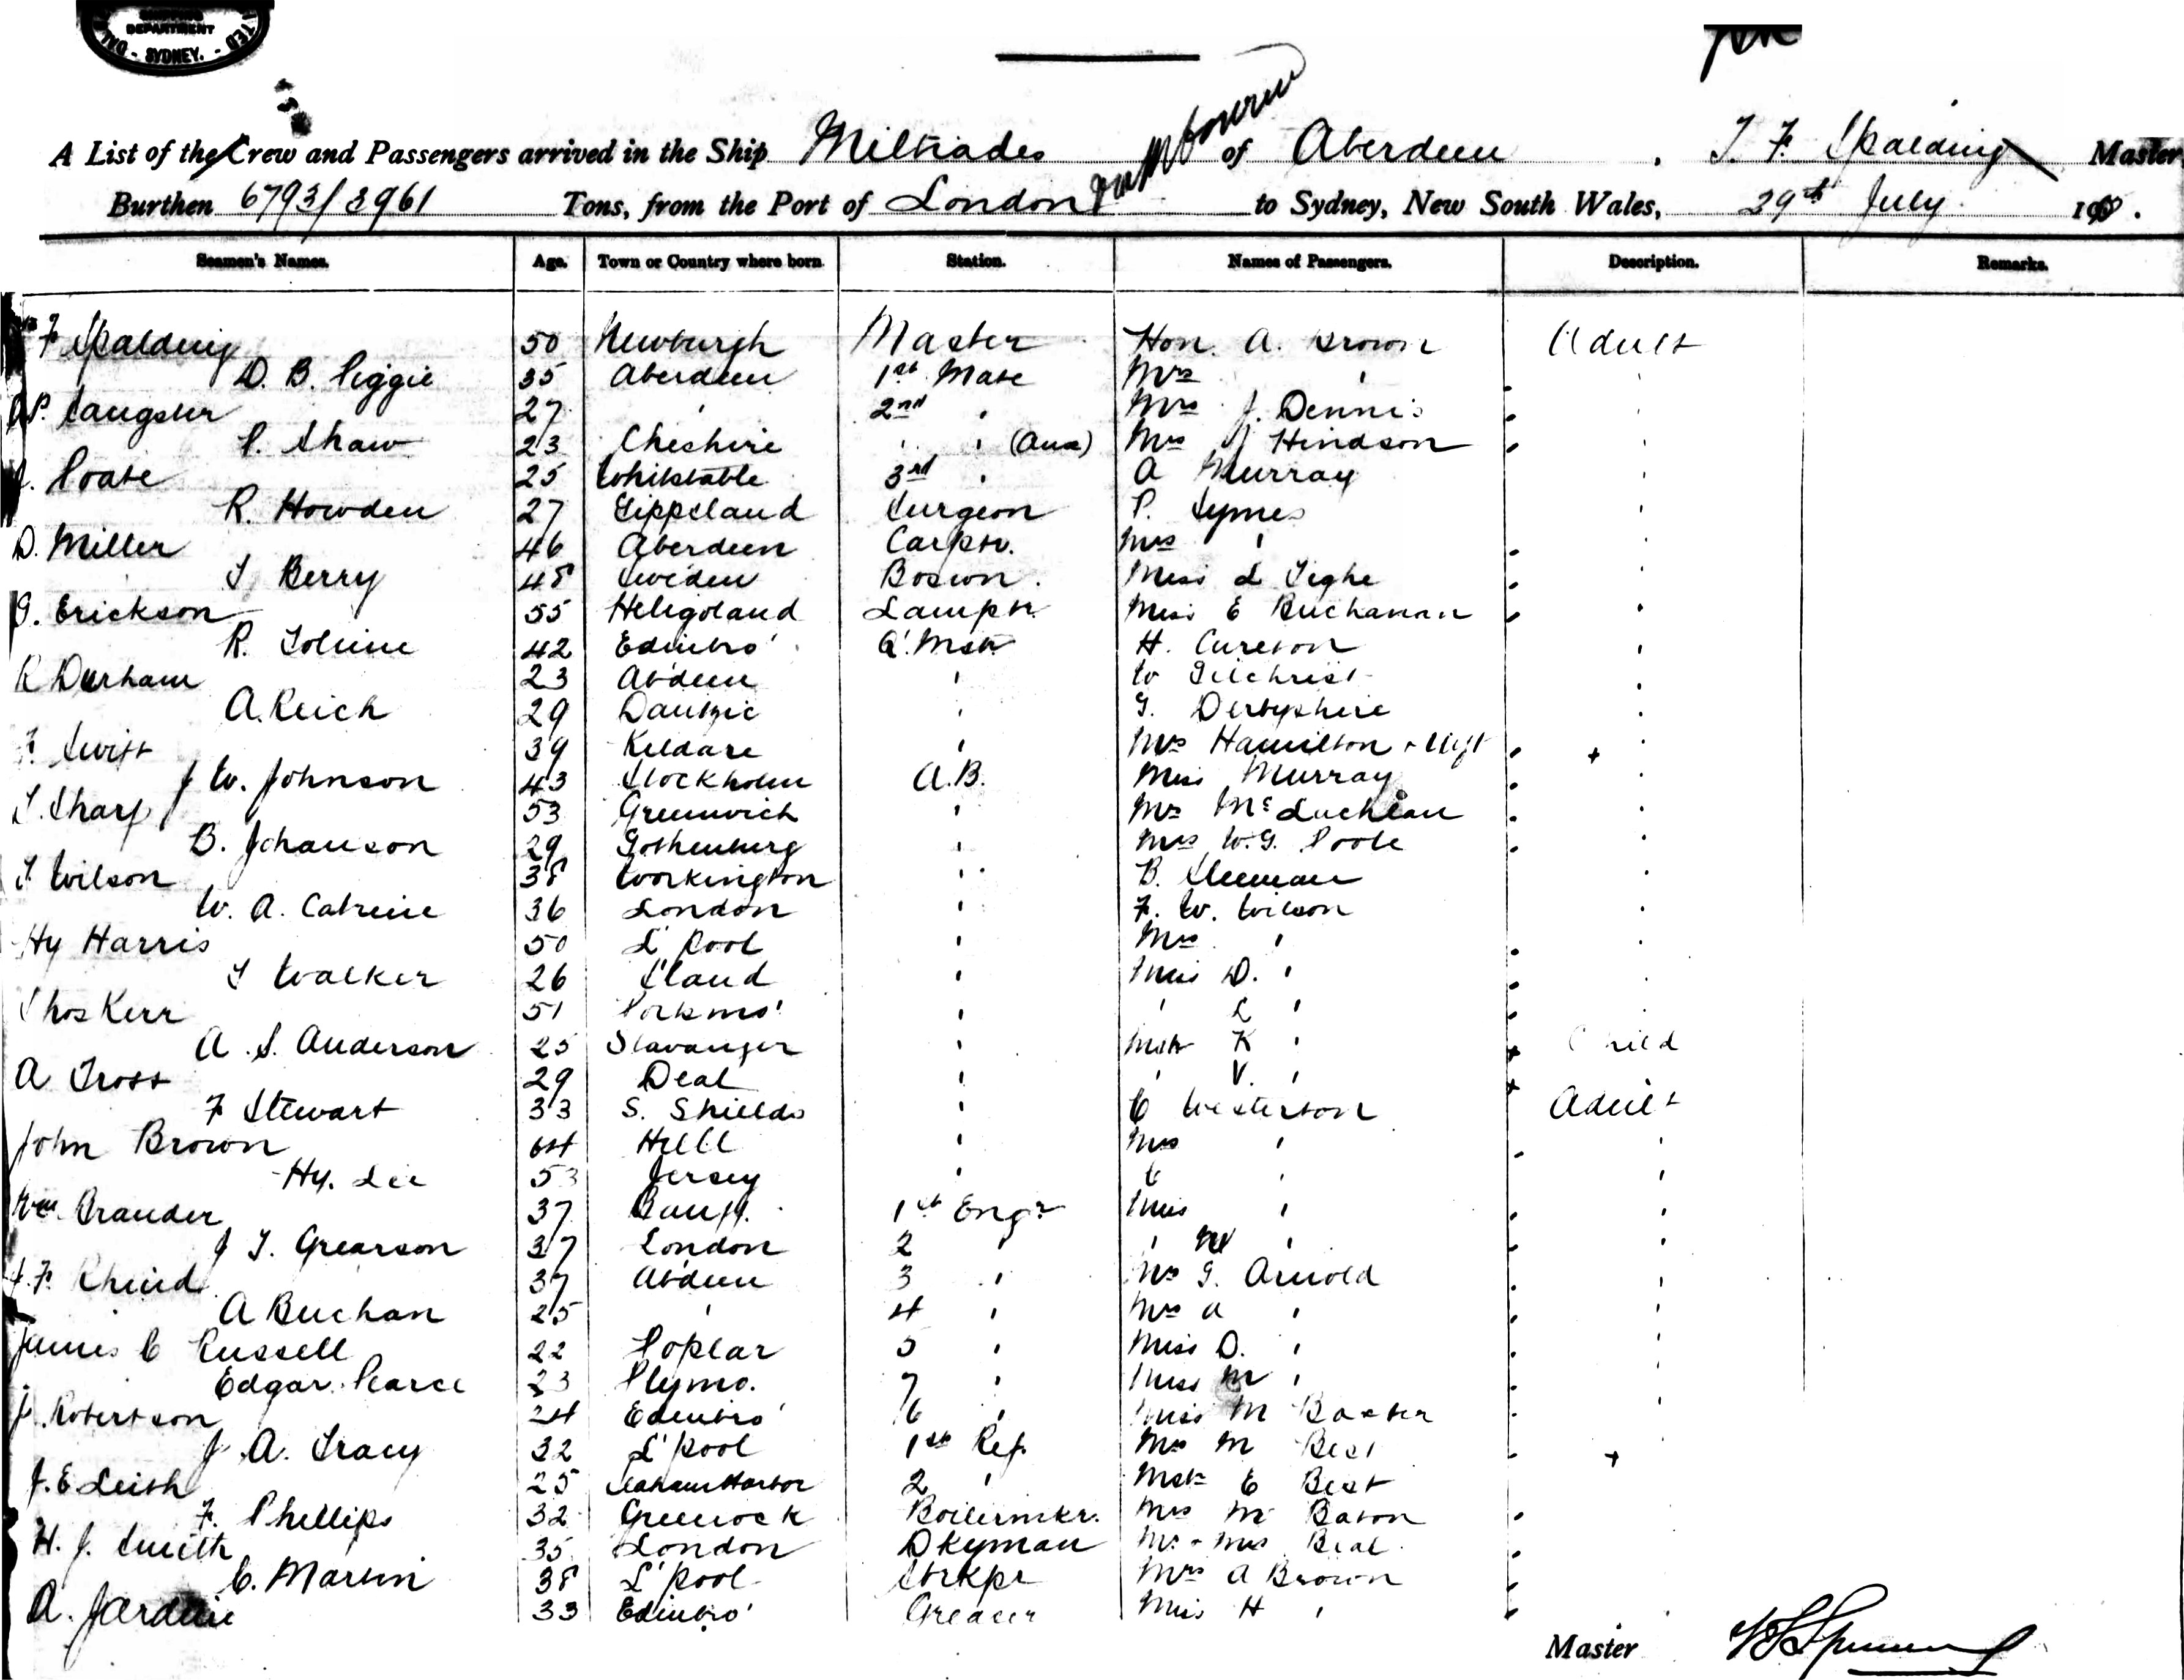 DEPARTMENT
- SYDNEY. -
A List of the Crew and Passengers arrived in the Ship Miltiades of Aberdeen, T. F. Spalding Master
Burthen 6793/3961 Tons, from the Port of London to Sydney, New South Wales, 29th July 19
Seamen's Names. Age. Town or Country where born. Station. Names of Passengers. Description. Remarks.
F Spalding 50 Newburgh Master Hon. A. Brown Adult
D. B. Piggie 35 Aberdeen 1st Mate Mrs "
P. Sangster 27 " 2nd " Mrs J. Dennis "
P. Shaw 23 Cheshire " " (Aux) Mrs J Hindson "
Poate 25 Whitstable 3rd " A Murray "
R. Howden 27 Gippsland Surgeon P. Symes "
D. Miller 46 Aberdeen Carptr. Mrs " "
T Berry 48 Sweden Boswn. Miss L Tighe "
G. Erickson 55 Heligoland Lamptr. Miss E Buchanan "
R. 42 Edinbro' Q. Mstr H. Cureton "
R Durham 23 Abdeen " W Gilchrist "
A. Reich 29 Dantzic " G. Derbyshire "
F. Swift 39 Kildare " Mrs Hamilton + "
J W. Johnson 43 Stockholm A.B. Miss Murray "
T. Sharp 53 Greenwich " Mrs McLachlan "
B. Johanson 29 Gothenburg " Mrs W. G. Poole "
T Wilson 38 Workington " B. Sleeman "
W. A. Catrine 36 London " F. W. Wilson "
Hy Harris 50 L'pool " Mrs " "
T Walker 26 S'land " Miss D. " "
Thos Kerr 51 Portsmo' " " L " "
A. S. Anderson 25 Stavanger " Mstr K " Child
A Tross 29 Deal " " V. "
F Stewart 33 S. Shields " C Westerton Adult
John Brown 64 Hull " Mrs " "
Hy. Lee 53 Jersey " C " "
Wm Brander 37 Banff. 1st Engr Miss " "
J T. Grearson 37 London 2 " " M " "
F. Rhind 37 Abdeen 3 " Mrs G. Arnold "
A Buchan 25 " 4 " Mrs A " "
James C Russell 22 Poplar 5 " Miss D. " "
Edgar Pearce 23 Plymo. 7 " Miss M " "
J. Robertson 24 Edinbro' 6 " Miss M Baxter "
J. A. Tracy 32 L'pool 1st Ref. Mrs M Best +
J. E Leith 25 Seaham Harbor 2 " Mstr E Best
F. Phillips 32 Greenock Boilermkr. Mrs M Baton
H. J. Smith 35 London Dkyman Mr + Mrs Beal
C. Martin 38 L'pool Storkpr Mrs A Brown
A. Jardine 33 Edinbro' Greaser Miss H "
Master